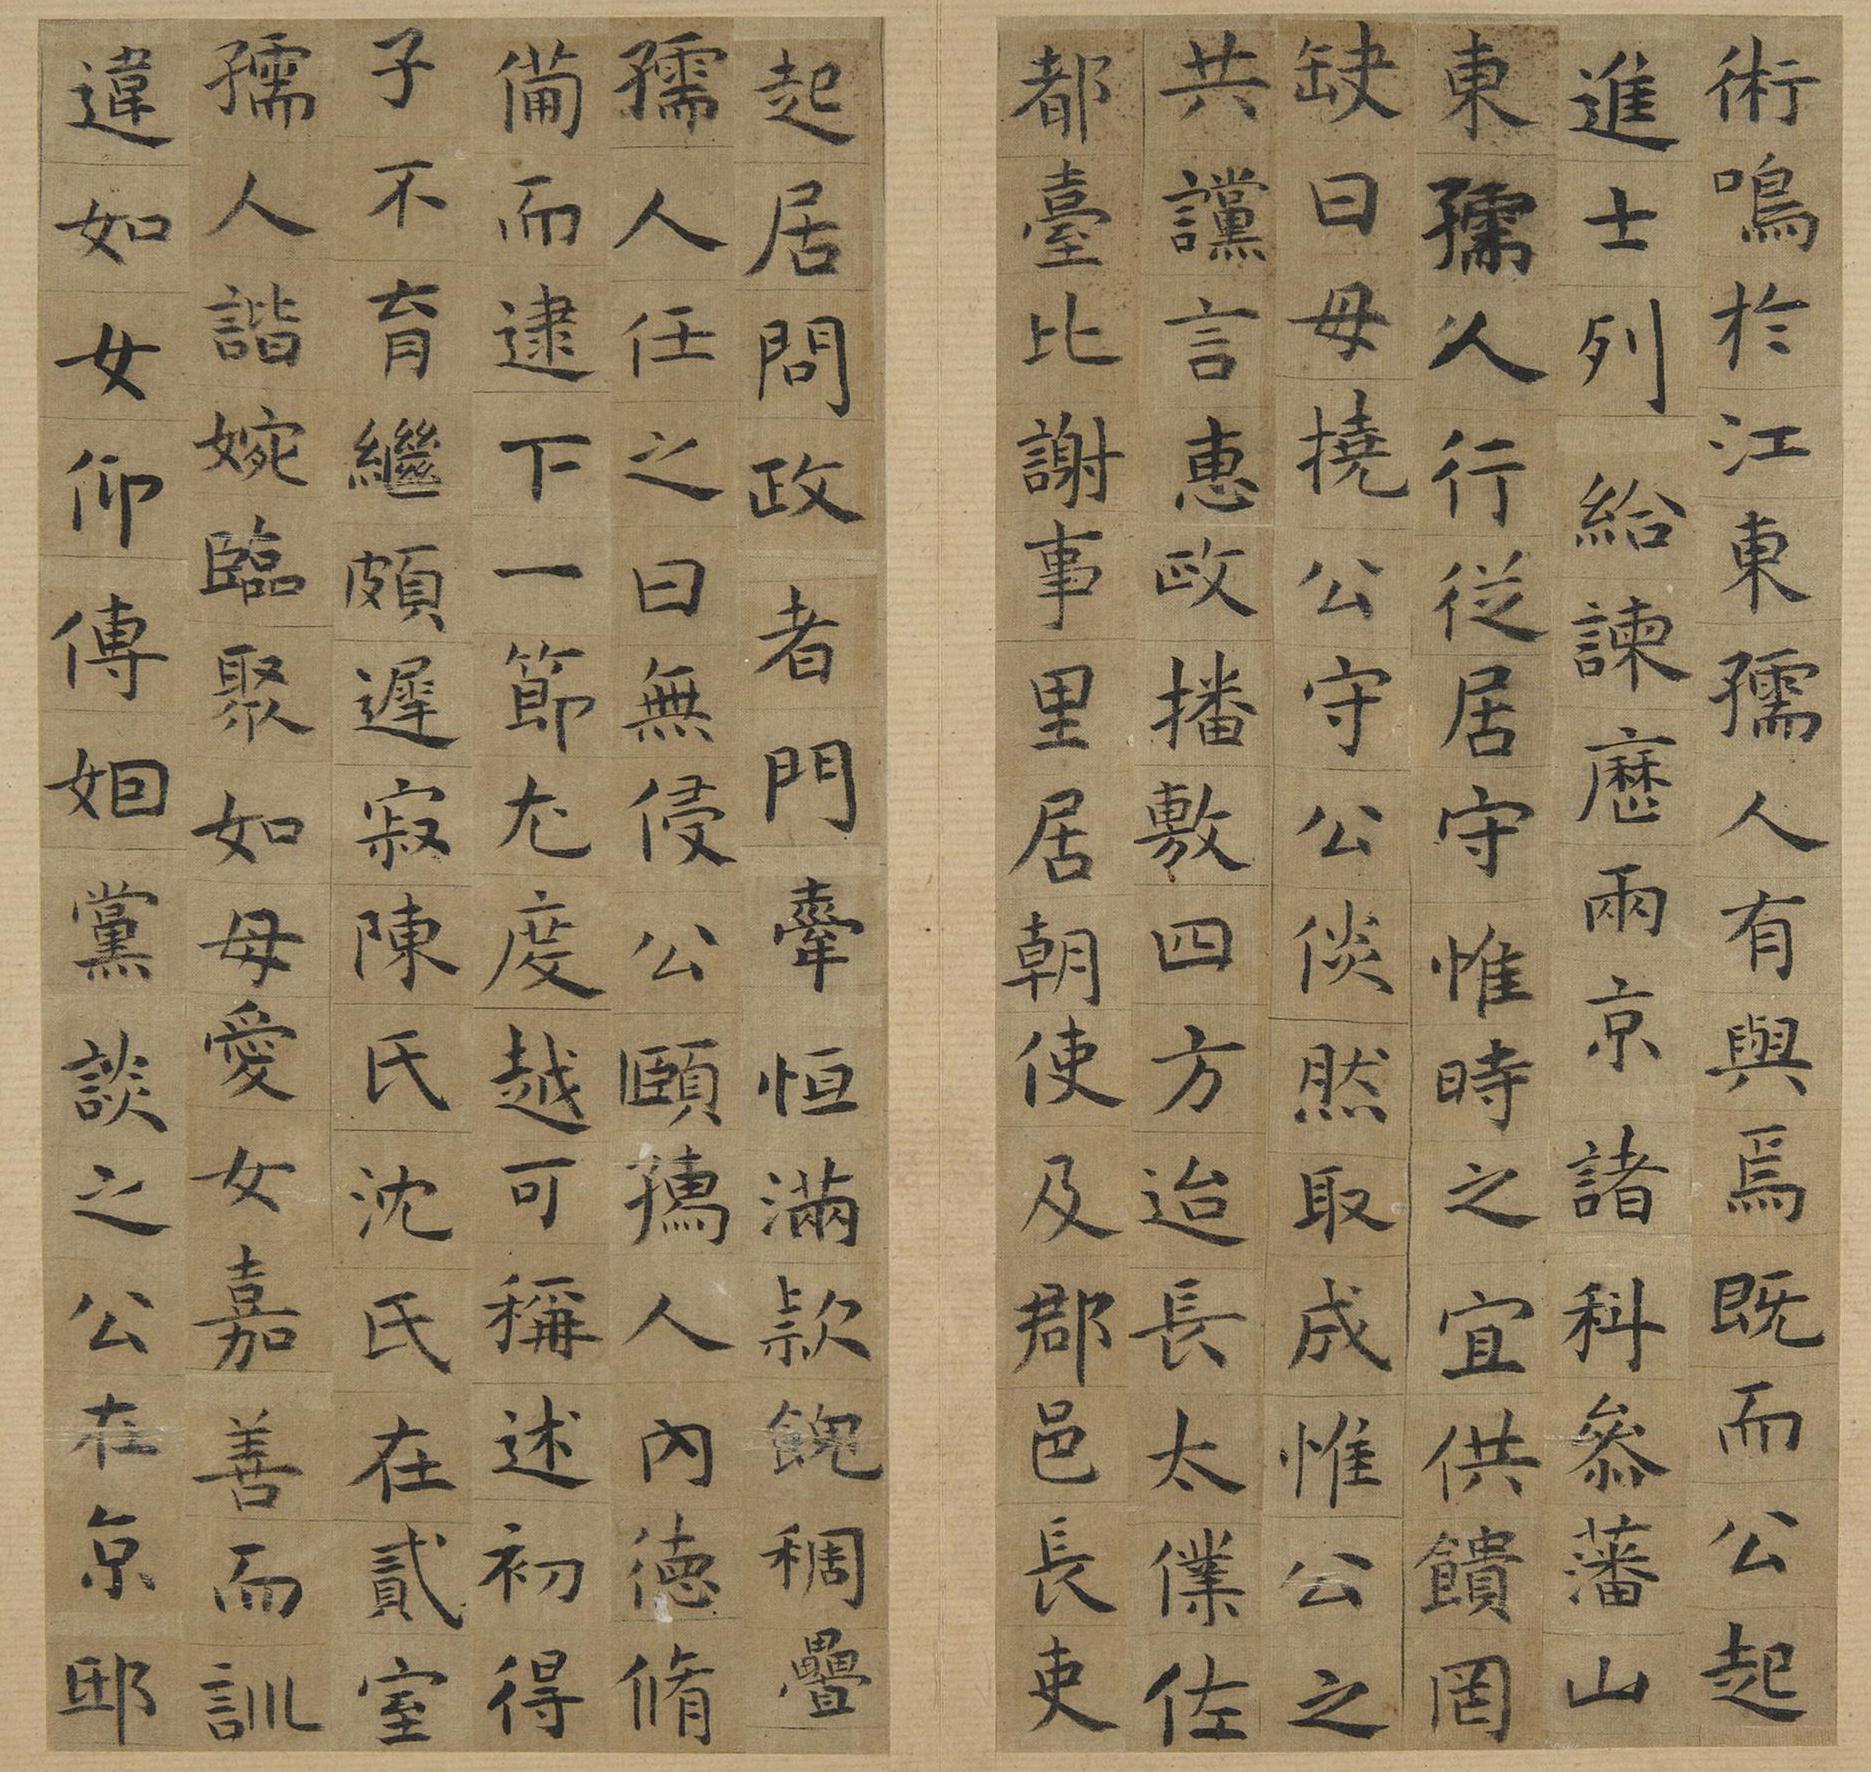 術鳴於江東孺人有與焉既而公起
進士列給諫歷兩京諸科叅藩山
東孺人行從居守惟時之宜供饋罔
缺曰毋撓公守公倓然取成惟公之
共讜言惠政播敷四方迨長太僕佐
都臺比謝事里居朝使及郡邑長吏
起居問政者門牽恒滿款餽稠疊
孺人任之曰無侵公頤孺人內德脩
備而逮下一節尤度越可稱述初得
子不育繼頗遲寂陳氏沈氏在貳室
孺人諧婉臨聚如母愛女嘉善而訓
違如女仰傅姆黨談之公在京邸